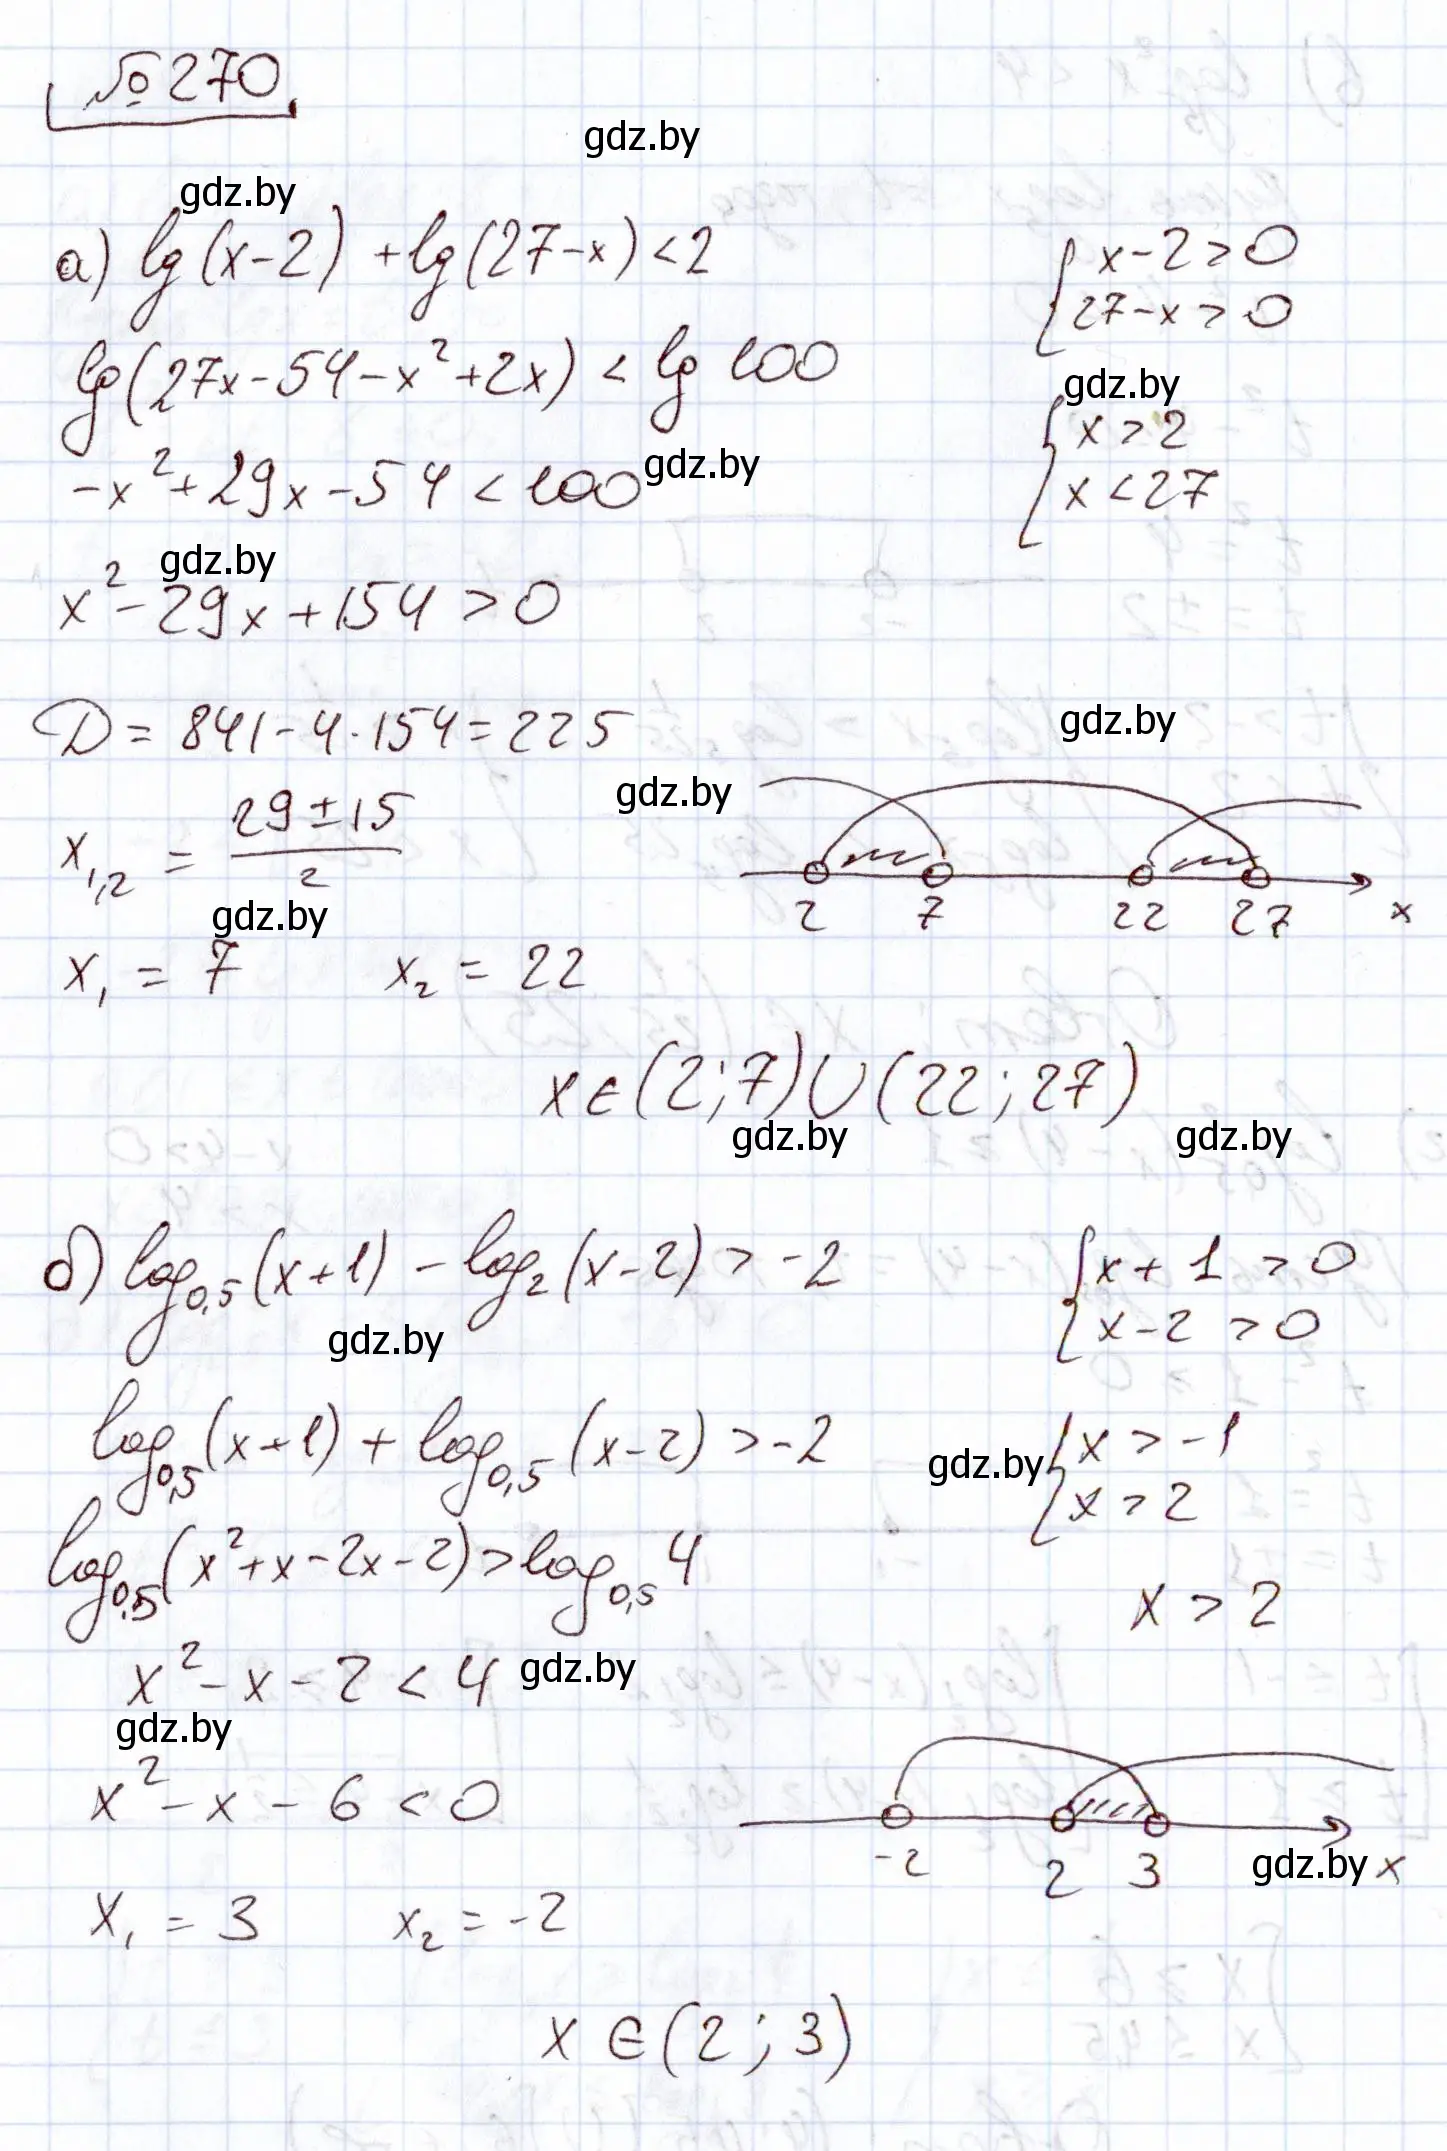 №270
gdz.by
gdz.by
а) lg(x-2) + lg(27-x) < 2
x-2 > 0
27-x > 0
lg(27x-54-x²+2x) < lg 100
gdz.by
x > 2
x < 27
-x²+29x-54 < 100
gdz.by
gdz.by
x²-29x+154 > 0
D = 841-4·154 = 225
gdz.by
gdz.by
x₁,₂ = (29±15)/2
2 7 22 27 x
gdz.by
x₁ = 7 x₂ = 22
x∈(2;7)∪(22;27)
gdz.by gdz.by
б) log₀,₅(x+1) - log₂(x-2) > -2
x+1 > 0
x-2 > 0
gdz.by
log₀,₅(x+1) + log₀,₅(x-2) > -2
gdz.by
x > -1
x > 2
log₀,₅(x²+x-2x-2) > log₀,₅4
x > 2
x²-x-2 < 4
gdz.by
gdz.by
x²-x-6 < 0
-2 2 3 x
gdz.by
x₁ = 3 x₂ = -2
x∈(2;3)